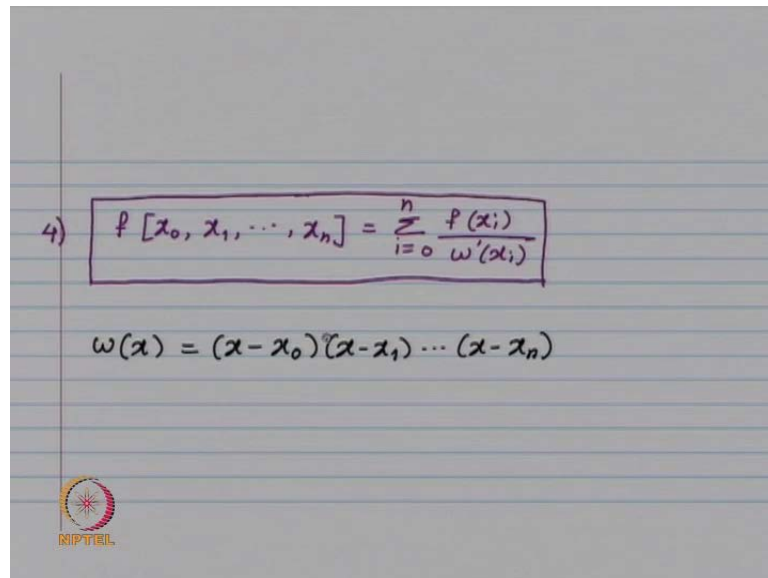 4) f [x₀, x₁, ..., xₙ] = n Σ i=0 f(xᵢ) / ω'(xᵢ)
ω(x) = (x - x₀)(x - x₁) ... (x - xₙ)
NPTEL